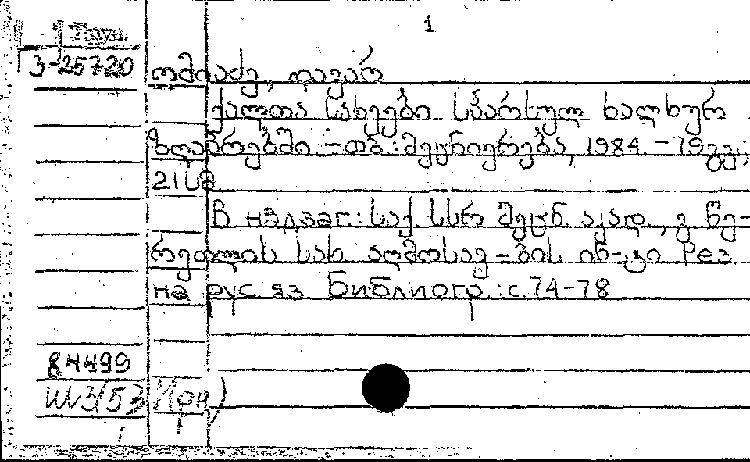 1
3-25720
ომიაძე, თავარ
ქალთა სახეები სპარსულ ხალხურ
ზღაპრებში. - თბ.: მეცნიერება, 1984. - 79გვ.;
21სმ
В надзаг.: საქ. სსრ მეცნ. აკად., გ. წე-
რეთლის სახ. აღმოსავ-ბის ინ-ტი Рез.
на рус. яз. Библиогр.: с. 74-78
84499